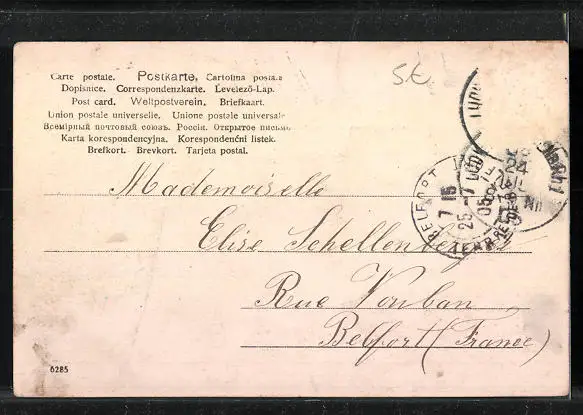 Carte postale. Postkarte. Cartolina postale
Dopisnice. Correspondenzkarte. Levelező-Lap.
Post card. Weltpostverein. Briefkaart.
Union postale universelle. Unione postale universale
Всемірный почтовый союзъ. Россія. Открытое письмо.
Karta korespondencyjna. Korespondenční listek.
Brefkort. Brevkort. Tarjeta postal.
St.
Mademoiselle
Elise Schellenberg
Rue Vouban
Belfort (France)
BELFORT
7 15
25 - 7
05
6285